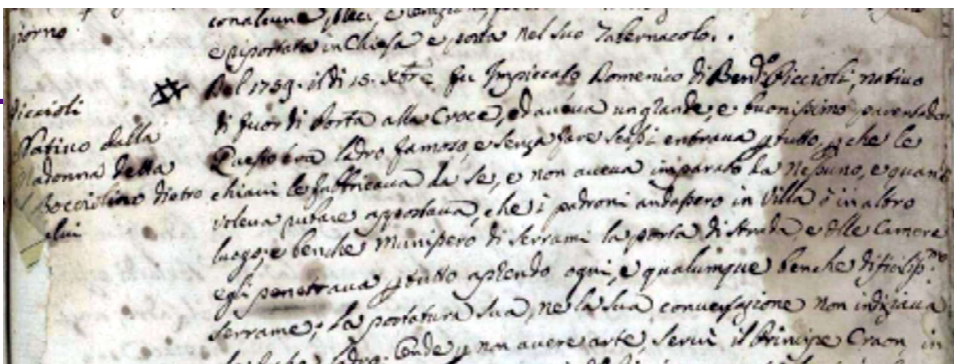 giorno
e riportata in Chiesa e posta nel suo Tabernacolo.
Del 1759. il dì 15. Xbre fu Impiccato Domenico di Bend.o Piccioli, nativo
Piccioli
di fuor di Porta alla Croce, ed aveva un grande, e buonissimo parentado
Nativo dalla
Questo era ladro famoso, e senza fare scassi entrava p tutto, p che le
Madonna della
chiavi le fabbricava da se, e non aveva imparato da nessuno, e quando
dietro
voleva rubare appostava, che i padroni andassero in Villa ò in altro
luogo, e benche munissero di serrami la porta di strada, e delle Camere
egli penetrava p tutto aprendo ogni, e qualumque benche dificiliss.mo
serrame; la portatura sua, ne la sua conversazione non indizava
ladro. Onde p non avere arte, servì il Principe Craon in